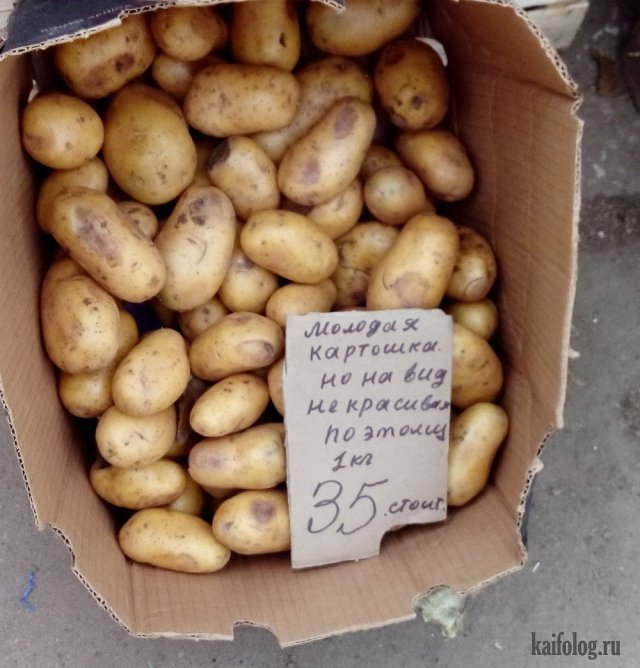 Молодая
картошка.
но на вид
не красивая
поэтому
1кг
35. стоит.
kaifolog.ru